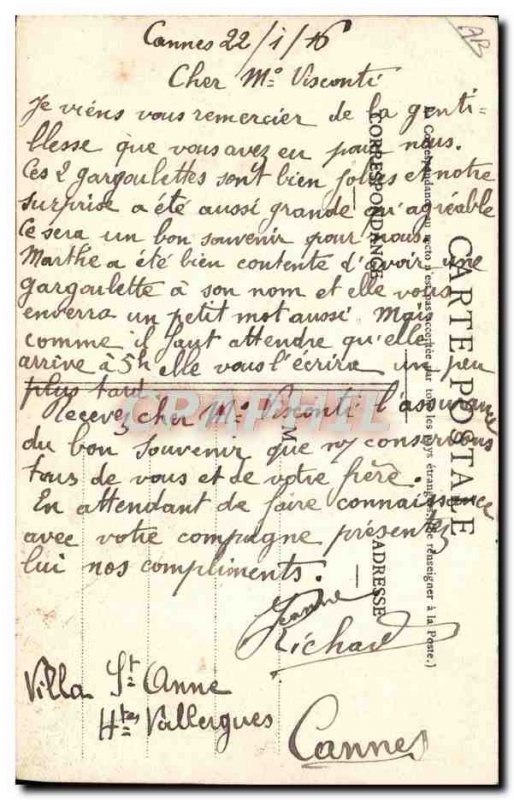 AB
Cannes 22/1/16
Cher Mº Visconti
Je viens vous remercier de la genti-
llesse que vous avez eu pour nous.
Ces 2 gargoulettes sont bien jolies et notre
surprise a été aussi grande qu'agréable
Ce sera un bon souvenir pour nous
Marthe a été bien contente d'avoir une
gargoulette à son nom et elle vous
enverra un petit mot aussi. Mais
comme il faut attendre qu'elle
arrive à 5h elle vous l'écrira un peu
plus tard
Recevez cher Mº Visconti l'assurance
du bon souvenir que ns conservons
tous de vous et de votre frère.
En attendant de faire connaissance
avec votre compagne présentez
lui nos compliments.
Jeanne
Richard
Villa St Anne
Htes Vallergues
Cannes
CARTE POSTALE
CORRESPONDANCE
ADRESSE
M
CARTAPHIL.COM